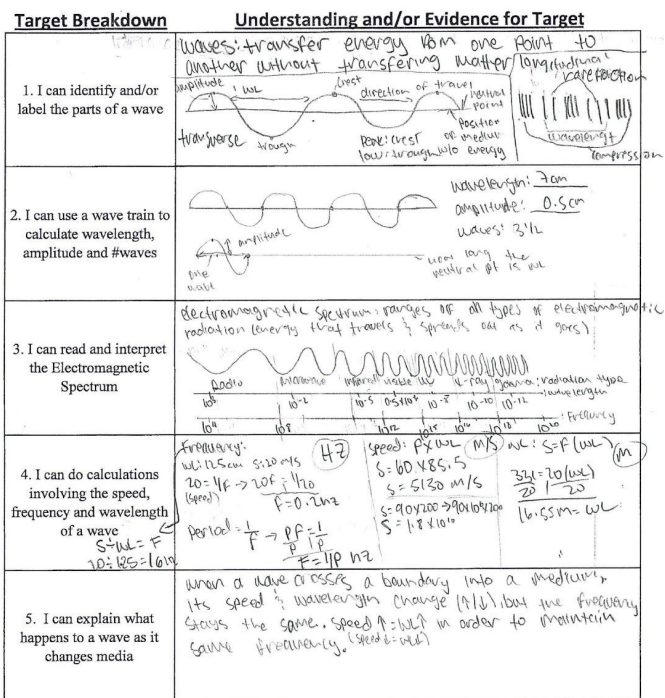 Target Breakdown
Understanding and/or Evidence for Target
1. I can identify and/or
label the parts of a wave
waves: transfer energy from one Point to
another without transfering matter
amplitude
WL
crest
direction of travel
neutral
point
position
of medium
w/o energy
transverse
trough
Peak: crest
low: trough
longitudinal
rarefaction
wavelength
compression
2. I can use a wave train to
calculate wavelength,
amplitude and #waves
wavelength: 7cm
amplitude: 0.5cm
waves: 3 1/2
amplitude
one
wave
how long the
neutral pt is WL
3. I can read and interpret
the Electromagnetic
Spectrum
electromagnetic spectrum: ranges of all types of electromagnetic
radiation (energy that travels & spreads out as it goes)
Radio microwave infrared visible UV X-ray gamma: radiation type
: wavelength
10⁻² 10⁻⁵ 10⁻⁸ 10⁻¹⁰ 10⁻¹²
10⁴ 10⁸ 10¹² 10¹⁵ 10¹⁶ 10¹⁸ 10²⁰ : Frequency
4. I can do calculations
involving the speed,
frequency and wavelength
of a wave
S÷WL = F
Frequency:
HZ
WL: 125cm S: 20 m/s
(speed)
F = 0.2hz
Period = 1/F → PF/P = 1/P
F = 1/P hz
Speed: FxWL
M/S
S = 60 X 85.5
S = 5130 m/s
S = 90x200 → 90x10⁶x200
S = 1.8 x 10¹⁰
WL: S = F (WL)
M
331 = 20 (WL)
20 20
16.55M = WL
5. I can explain what
happens to a wave as it
changes media
when a wave crosses a boundary into a medium,
its speed & wavelength change (↑/↓), but the frequency
stays the same. speed ↑ = WL↑ in order to maintain
same frequency. (speed↓ = WL↓)